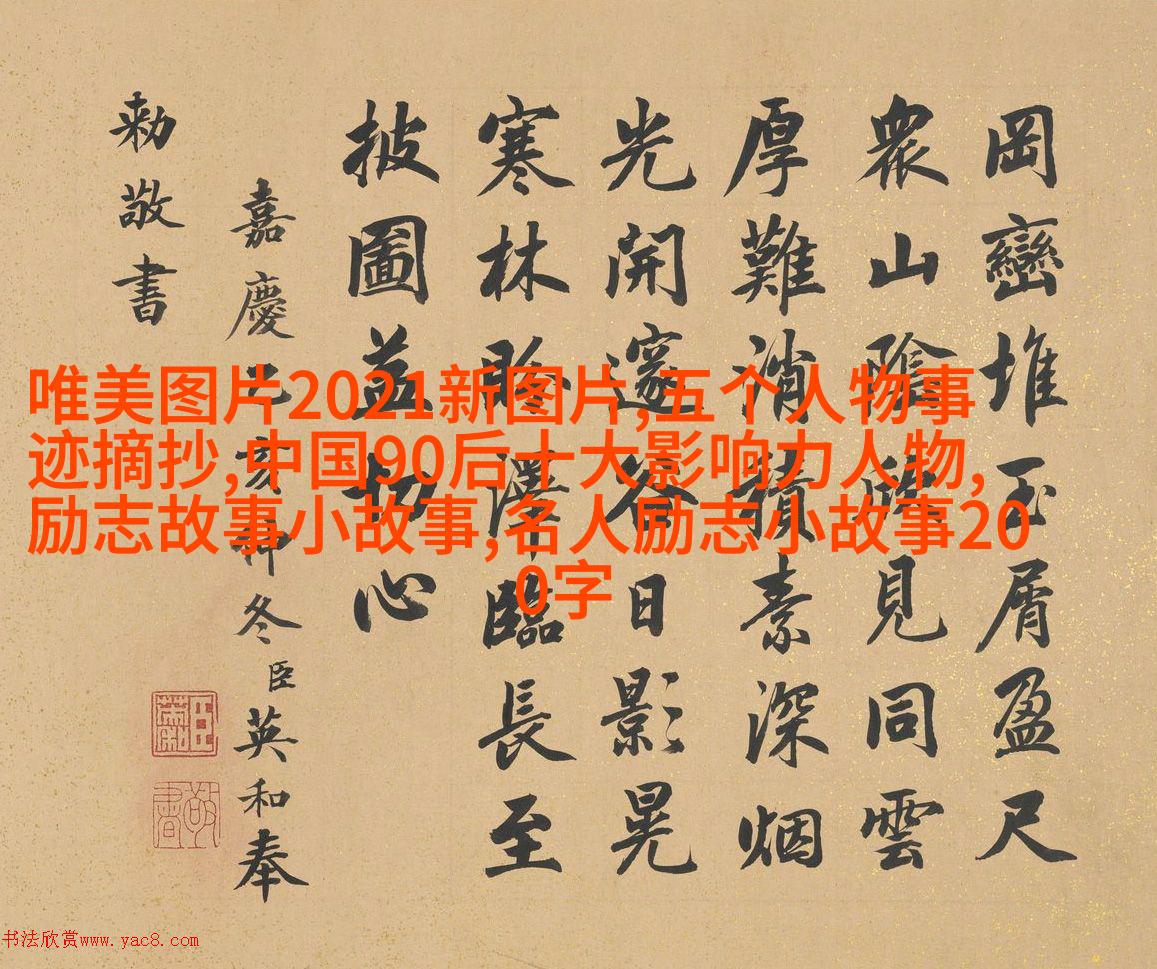 岡巒堆玉屑盈尺
衆山陰見同雲
厚難消積素深烟
光開邃谷日影晃
寒林澤臨長至
披圖益切心
嘉慶乙亥仲冬臣英和奉
勅敬書
敬書
唯美图片2021新图片,五个人物事
迹摘抄,中国90后十大影响力人物,
励志故事小故事,名人励志小故事20
0字
书法欣赏www.yac8.com